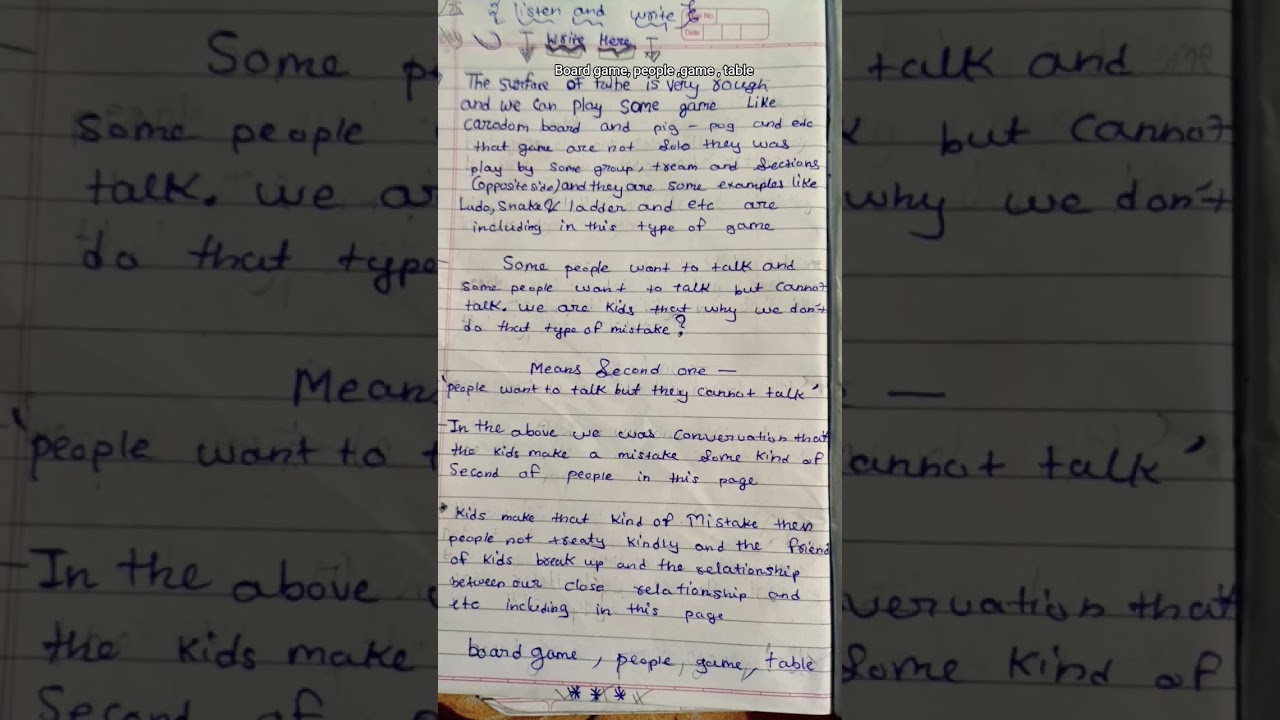 & listen and write
Page No.
Date
Write Here
Board game, people ,game , table
The surface of talbe is very rough
and we can play some game Like
carodom board and pig - pog and etc
that game are not solo they was
play by some group, tream and sections
(opposite side) and they are some examples like
Ludo, Snake & ladder and etc are
including in this type of game
Some people want to talk and
some people want to talk but cannot
talk. we are kids that why we don't
do that type of mistake?
Means Second one —
'people want to talk but they cannot talk'
- In the above we was Conversation that
the kids make a mistake some kind of
Second of people in this page
* Kids make that kind of Mistake then
people not treaty kindly and the friend
of kids break up and the relationship
between our close relationship and
etc including in this page
board game, people, game, table
***